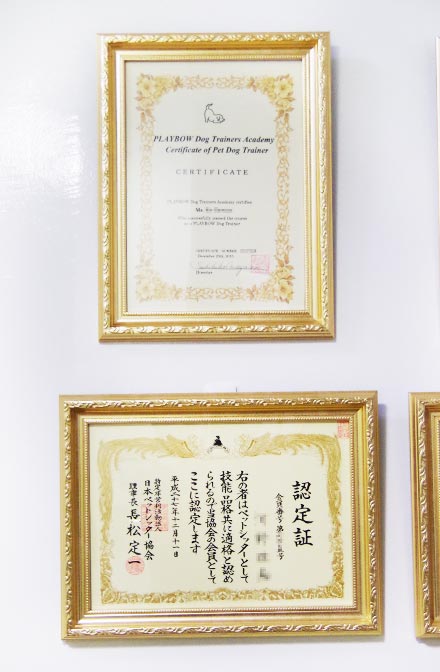 PLAYBOW Dog Trainers Academy
Certificate of Pet Dog Trainer
CERTIFICATE
PLAYBOW Dog Trainers Academy certifies
Ms.
successfully
the course
PLAYBOW Dog Trainer
CERTIFICATE NUMBER
Director
認定証
会員番号 第 号
右の者はペットシッターとして
技能品格共に適格と認め
られるので当協会の会員として
ここに認定します
平成二十七年十二月十一日
特定非営利活動法人
日本ペットシッター協会
理事長 長松定一